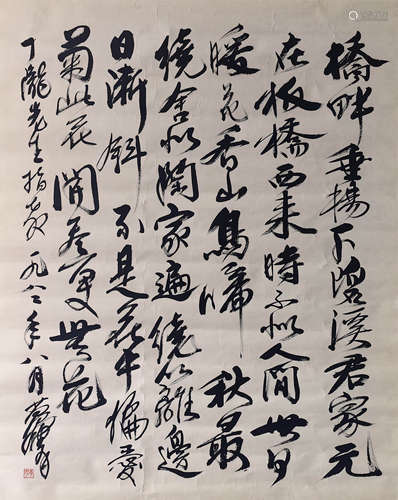 橋畔垂楊下碧溪君家元
在板橋西来時不似人間世日
暖花香山鳥啼 秋叢
繞舍似陶家遍繞籬邊
日漸斜 不是花中偏愛
菊此花開盡更無花
先生指教 一九八二年八月